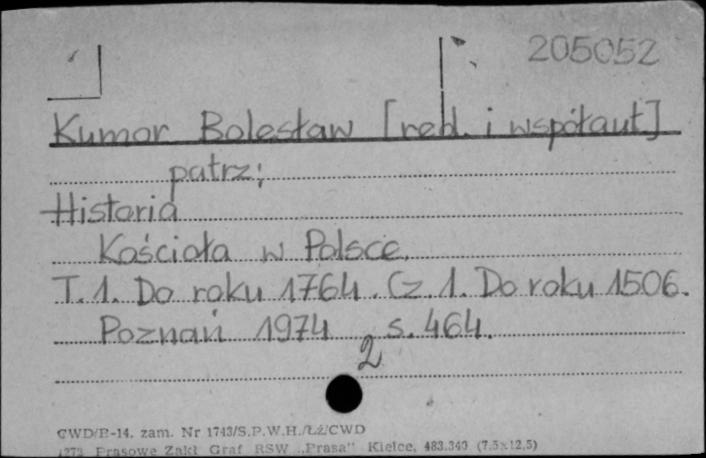 205052
Kumor Bolesław [red. i współaut]
patrz;
Historia
Kościoła w Polsce.
T. 1. Do roku 1764. Cz. 1. Do roku 1506.
Poznań 1974 s. 464.
2
CWD/P-14. zam. Nr 1743/S.P.W.H./ŁŻ/CWD
1273 Prasowe Zakł Graf RSW „Prasa" Kielce, 483.340 (7,5x12,5)